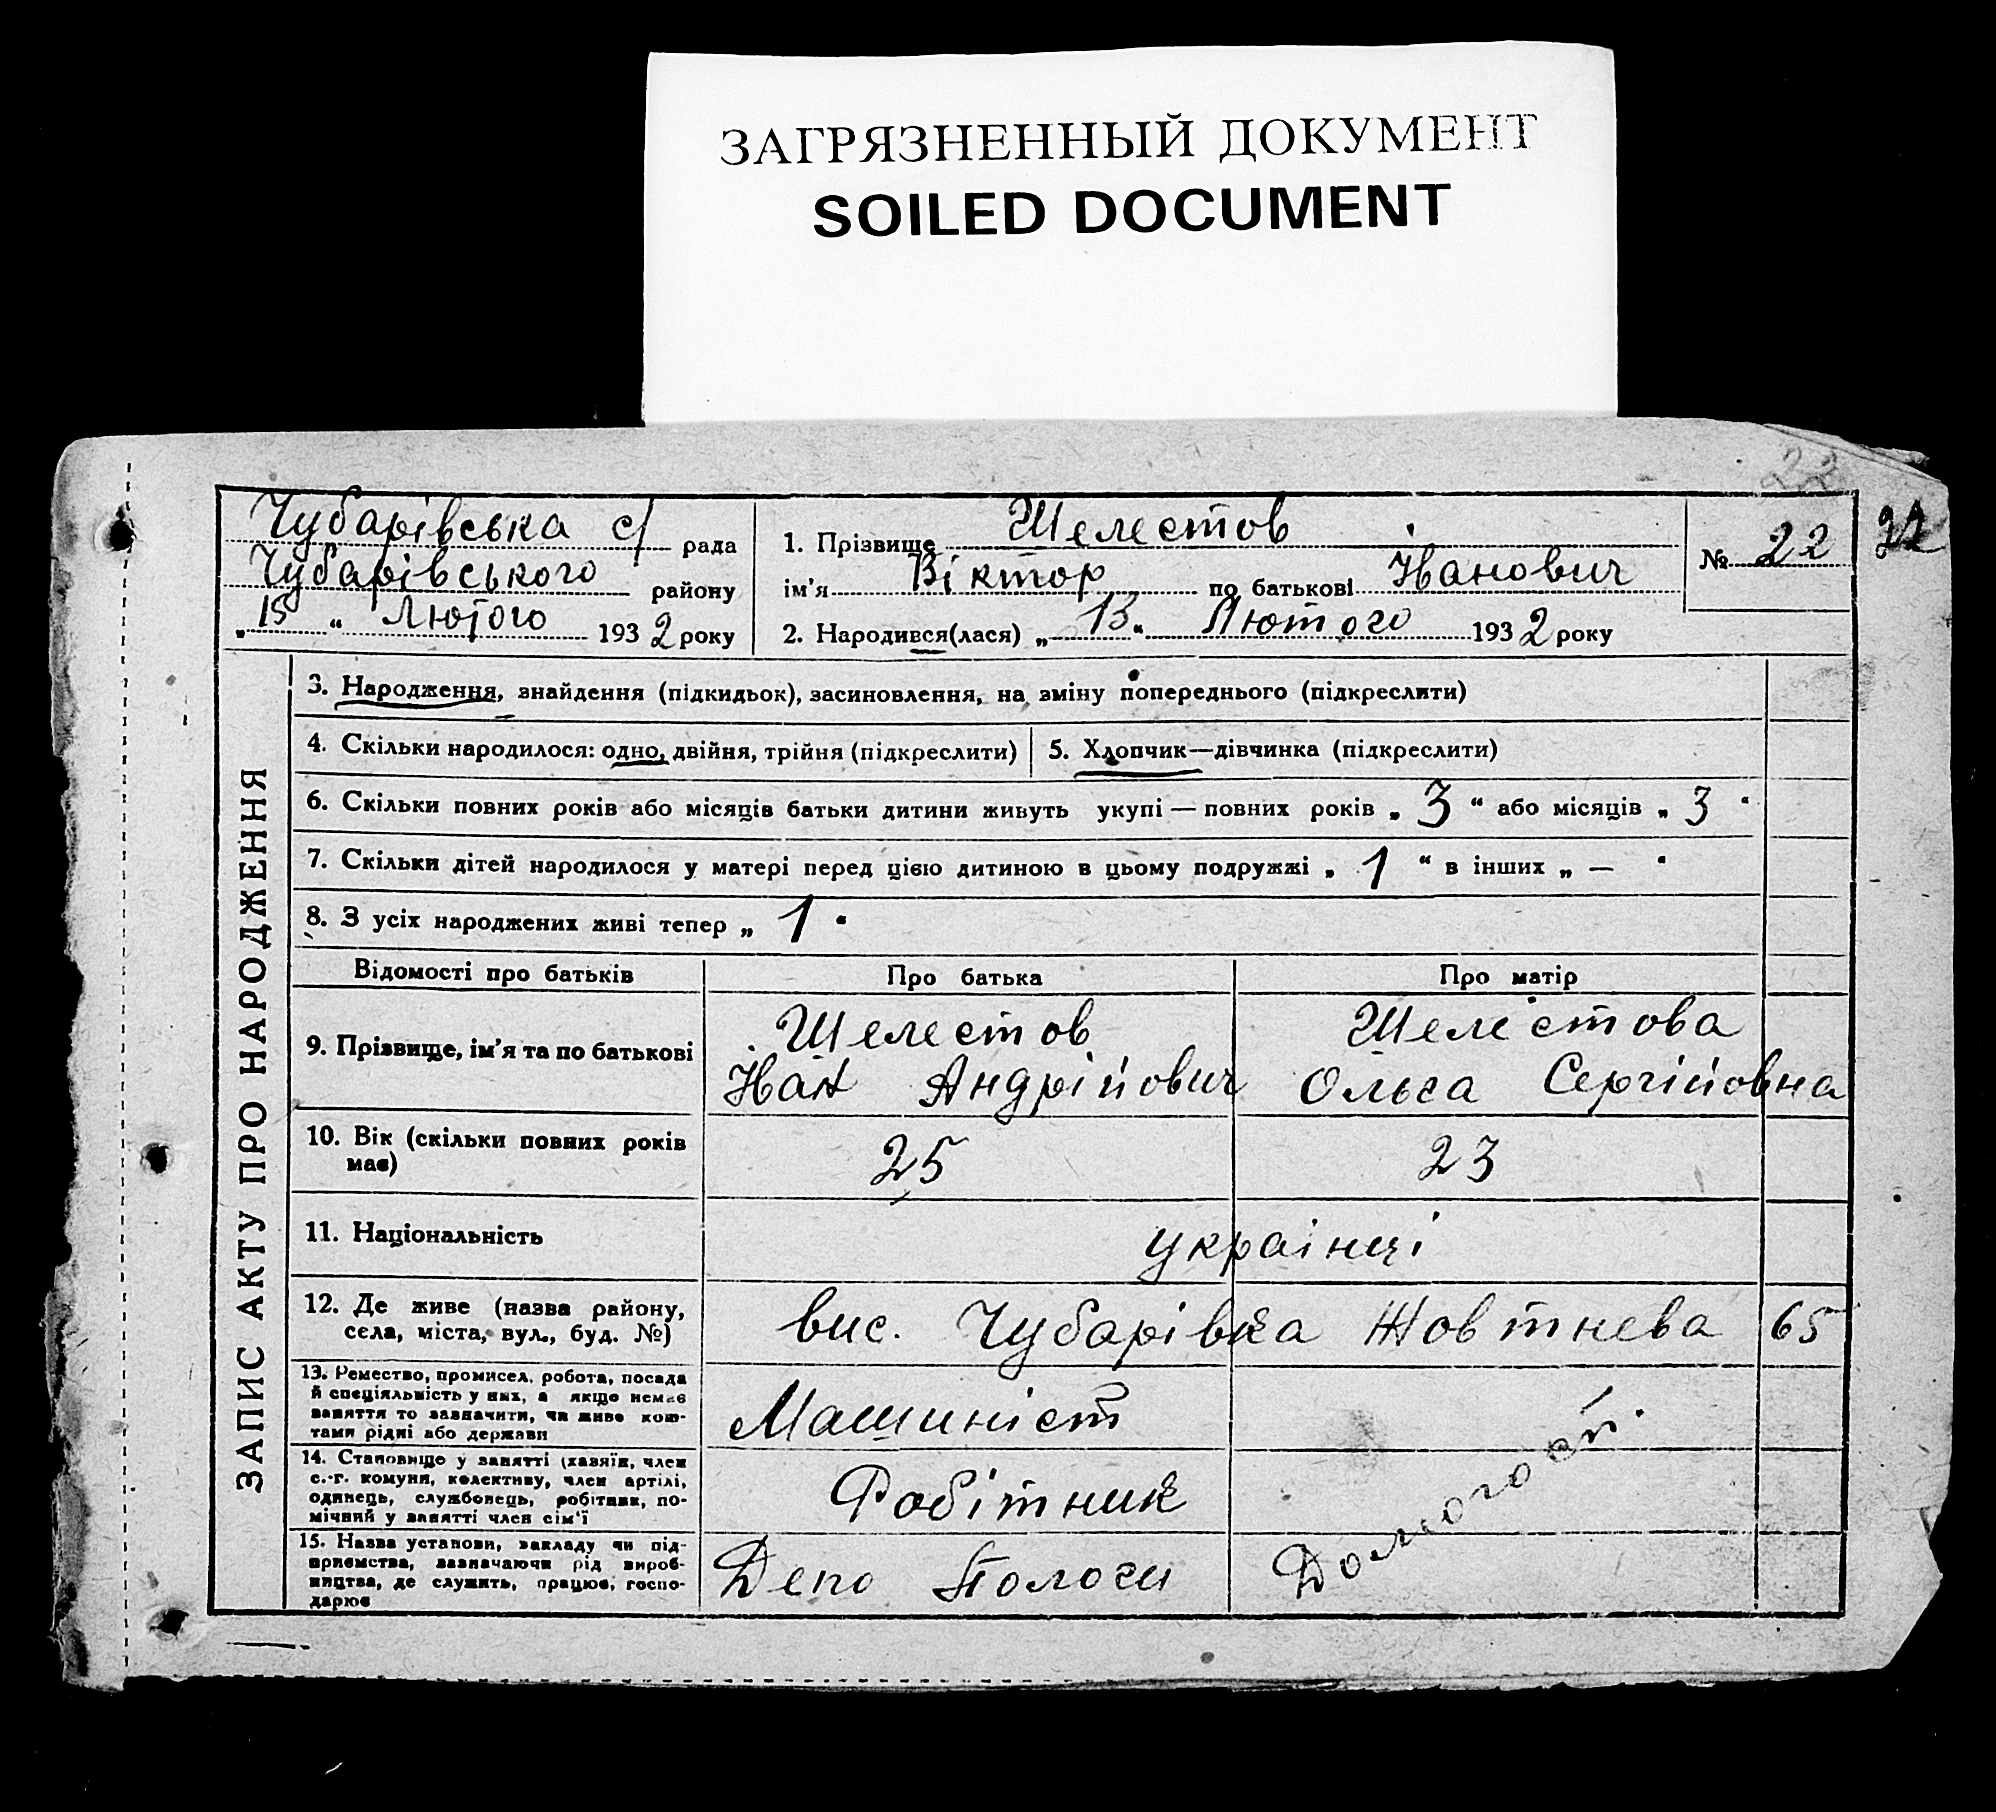 ЗАГРЯЗНЕННЫЙ ДОКУМЕНТ
SOILED DOCUMENT
22
Чубарівська с/ рада
Чубарівського району
„15“ Лютого 1932 року
1. Прізвище Шелестов
ім'я Віктор по батькові Іванович
2. Народився(лася) „13“ Лютого 1932 року
№ 22
22
ЗАПИС АКТУ ПРО НАРОДЖЕННЯ
3. Народження, знайдення (підкидьок), засиновлення, на зміну попереднього (підкреслити)
4. Скільки народилося: одно, двійня, трійня (підкреслити)
5. Хлопчик—дівчинка (підкреслити)
6. Скільки повних років або місяців батьки дитини живуть укупі — повних років „3“ або місяців „3“
7. Скільки дітей народилося у матері перед цією дитиною в цьому подружжі „1“ в інших „—“
8. З усіх народжених живі тепер „1“
Відомості про батьків
Про батька
Про матір
9. Прізвище, ім'я та по батькові
Шелестов
Іван Андрійович
Шелестова
Ольга Сергійовна
10. Вік (скільки повних років
має)
25
23
11. Національність
українці
12. Де живе (назва району,
села, міста, вул., буд. №)
вис. Чубарівка Жовтнева 65
13. Ремество, промисел, робота, посада
й спеціяльність у них, а якщо немає
заняття то зазначити, чи живе кош-
тами рідні або держави
Машиніст
14. Становище у занятті (хазяїн, член
с.-г. комуни, колективу, член артілі,
одинець, службовець, робітник, по-
мічний у занятті член сім'ї
Робітник
15. Назва установи, закладу чи під-
приємства, зазначаючи рід вироб-
ництва, де служить, працює, госпо-
дарює
Депо Пологи